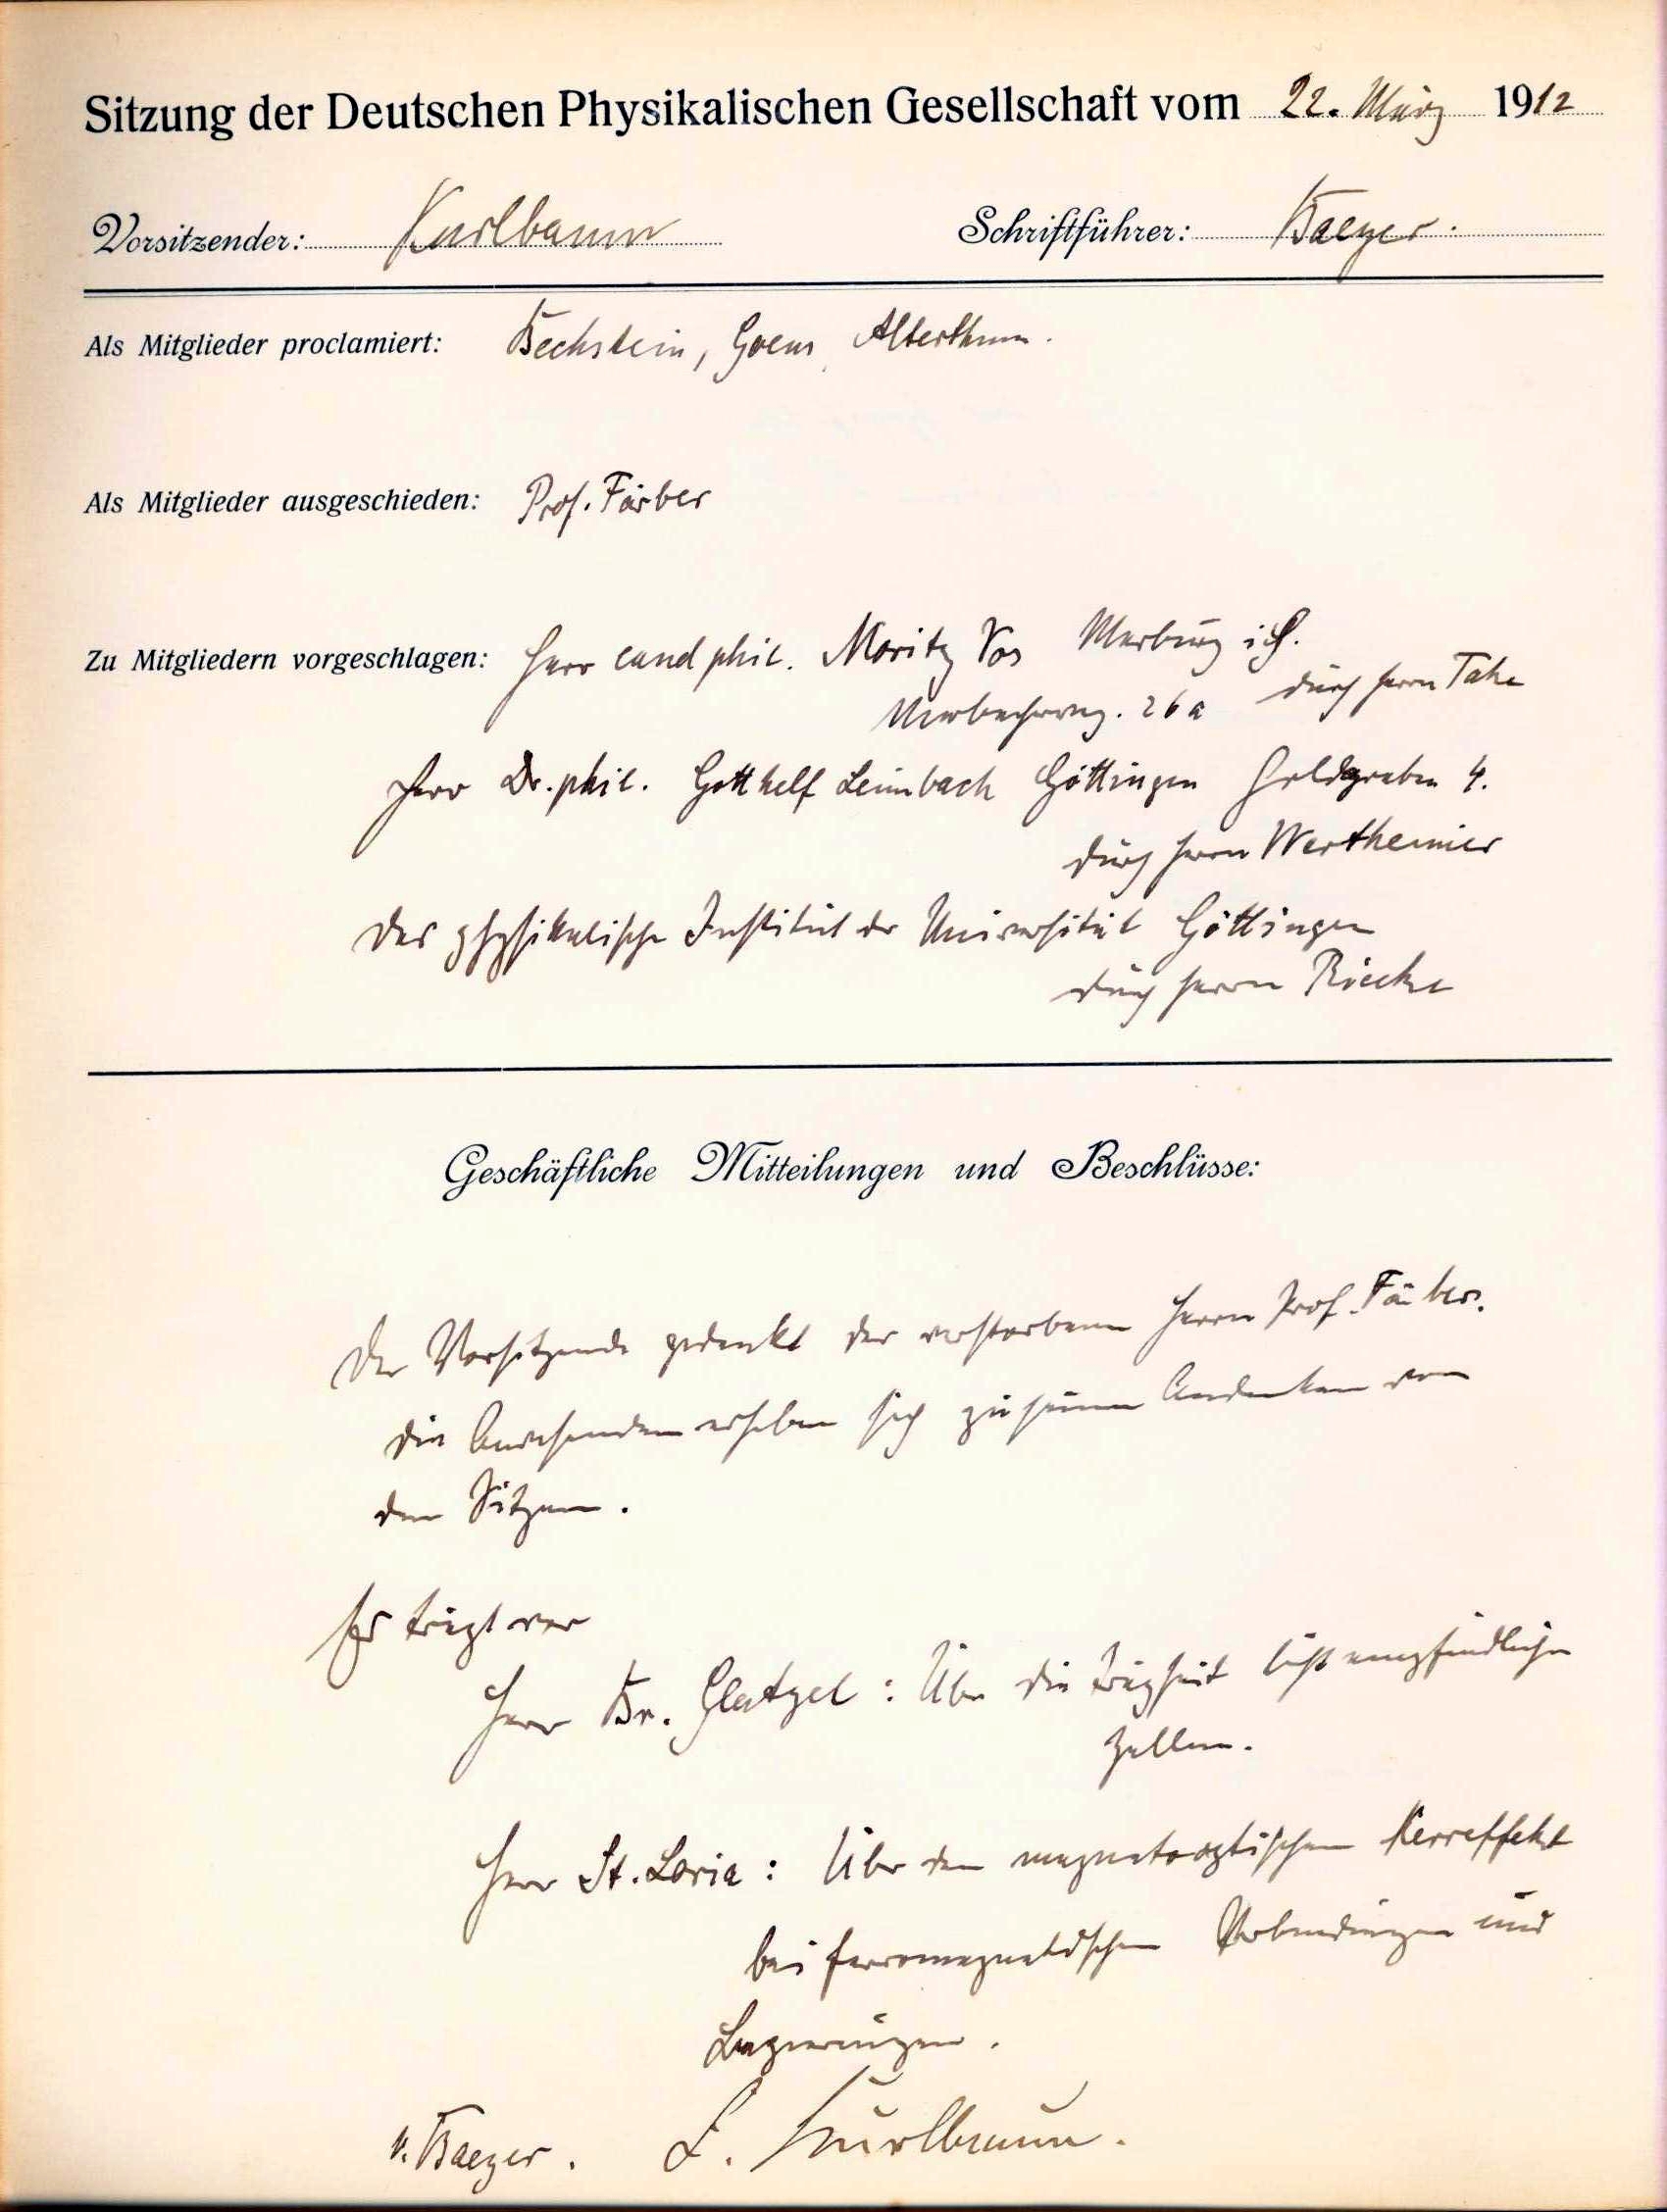 Sitzung der Deutschen Physikalischen Gesellschaft vom 22. März 1912
Vorsitzender: Kurlbaum Schriftführer: Baeyer.
Als Mitglieder proclamiert: Bechstein, Goens, Alterthum.
Als Mitglieder ausgeschieden: Prof. Färber
Zu Mitgliedern vorgeschlagen: Herr cand phil. Moritz Vos Marburg i/H.
26a durch Herrn
Herr Dr. phil. Gotthelf Leimbach Göttingen Goldgraben 4.
durch Herrn Wertheimer
Das physikalische Institut der Universität Göttingen
durch Herrn Riecke
Geschäftliche Mitteilungen und Beschlüsse:
Der Vorsitzende gedenkt des verstorbenen Herrn Prof. Färber.
Die Anwesenden erheben sich zu seinem Andenken von
den Sitzen.
Es trägt vor
Herr Br. Glatzel: Über die Trägheit lichtempfindlicher
Zellen.
Herr St. Loria: Über den magnetooptischen Kerreffekt
bei ferromagnetischen Verbindungen und
Legierungen.
v. Baeyer. F. Kurlbaum.